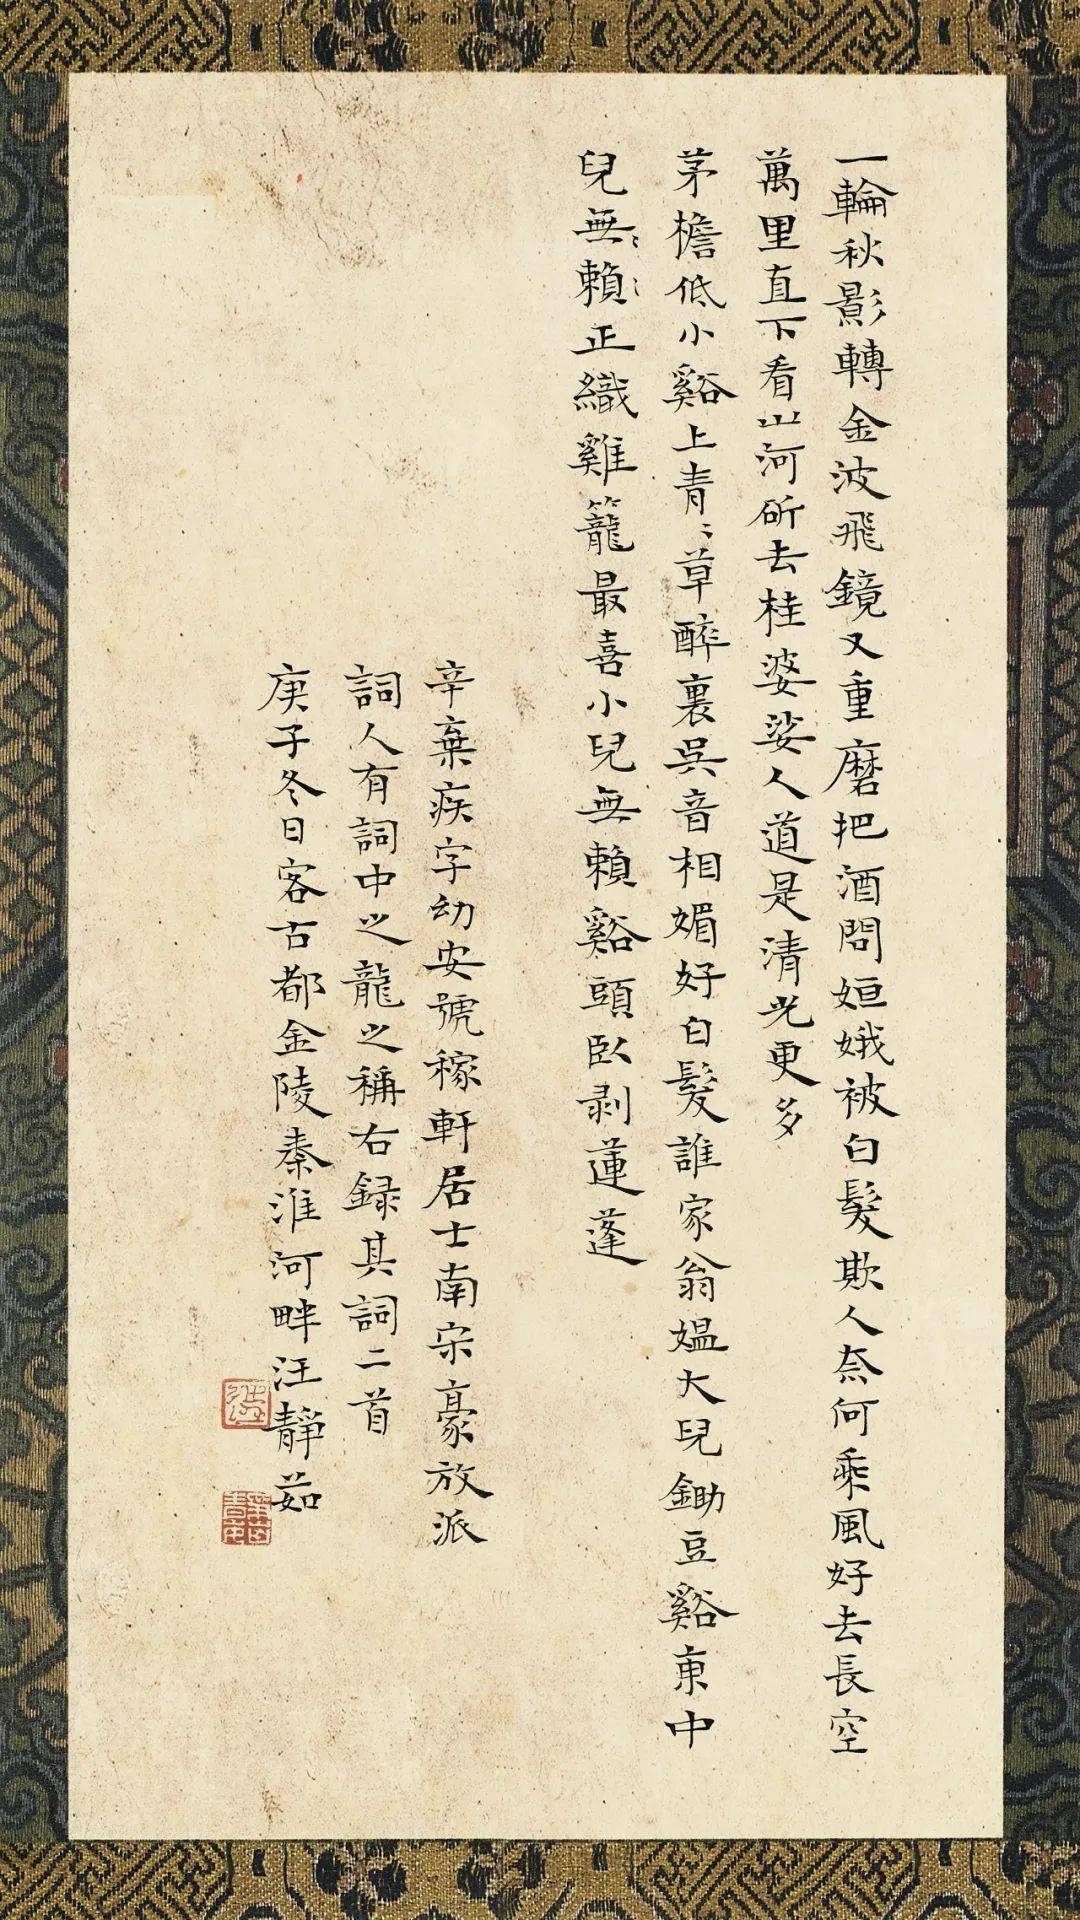 一輪秋影轉金波飛鏡又重磨把酒問姮娥被白髮欺人奈何乘風好去長空
萬里直下看山河斫去桂婆娑人道是清光更多
茅檐低小谿上青〻草醉裏吳音相媚好白髮誰家翁媼大兒鋤豆谿東中
兒無〻賴〻正織雞籠最喜小兒無賴谿頭臥剥蓮蓬
辛棄疾字幼安號稼軒居士南宋豪放派
詞人有詞中之龍之稱右録其詞二首
庚子冬日客古都金陵秦淮河畔汪靜茹